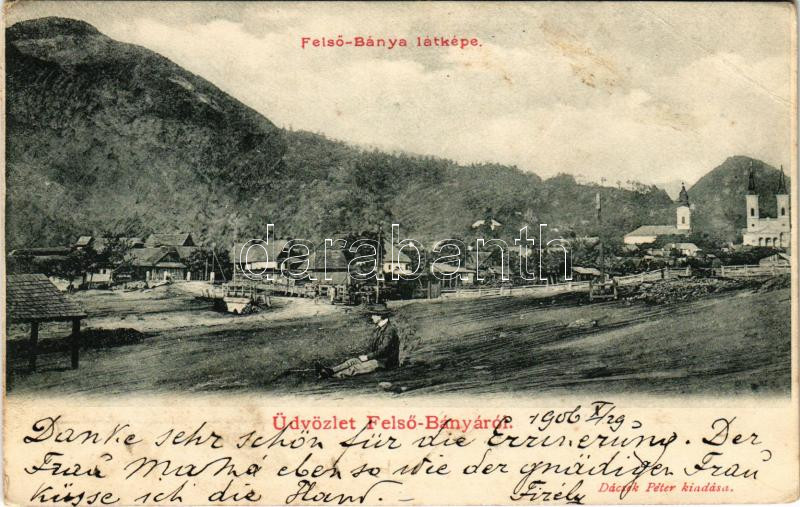 Felső-Bánya látképe.
darabanth
Üdvözlet Felső-Bányáról.
1906 X/29
Danke sehr schön für die Errinerung. Der
Frau Mama ebenso wie der gnädigen Frau
Küsse ich die Hand.-
Dácsek Péter kiadása.